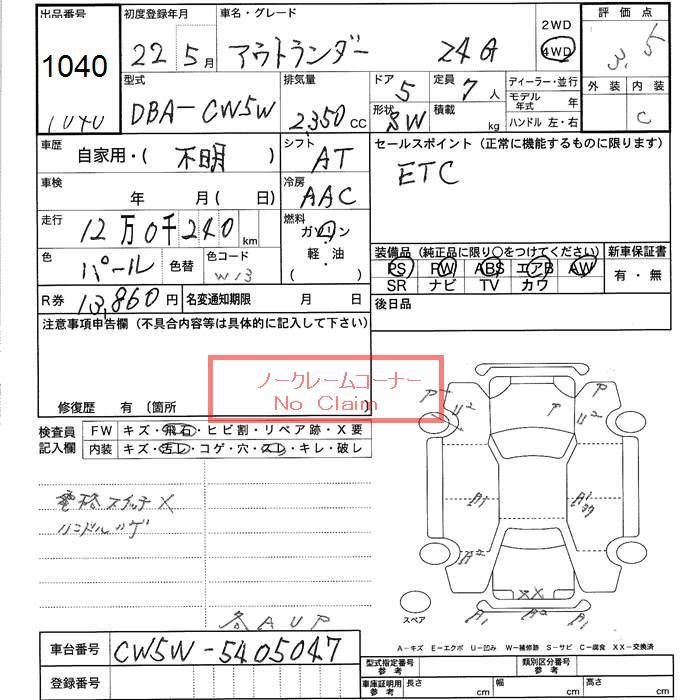 出品番号 初度登録年月 車名・グレード 2WD 評価点
1040 22 5月 アウトランダー 24G 4WD 3.5
型式 排気量 ドア 定員 ディーラー・並行 外装 内装
DBA-CW5W 2,350 CC 5 7人 モデル年式 年 C
形状 SW 積載 kg ハンドル 左・右
車歴 自家用・( 不明 ) シフト AT セールスポイント (正常に機能するものに限ります)
ETC
車検 年 月(日) 冷房 AAC
走行 12万0千240km 燃料 ガソリン
軽・油
( )
色 パール 色替 色コード W13
装備品 (純正品に限り〇をつけてください) 新車保証書
PS PW ABS エアB AW 有・無
SR ナビ TV カワ
R券 13,860円 名変通知期限 月 日 後日品
注意事項申告欄 (不具合内容等は具体的に記入して下さい)
ノークレームコーナー
No Claim
修復歴 有 〔箇所
検査員記入欄 FW キズ・飛石・ヒビ割・リペア跡・X要
内装 キズ・汚レ・コゲ・穴・スレ・キレ・破レ
電格スイッチX
ハンドルハゲ
各AUP
U2 P U2
A1 A1
A2
XX
A1 A2 A1
スペア
A-キズ E-エクボ U-凹み W-補修跡 S-サビ C-腐食 XX-交換済
車台番号 CW5W-5405047
型式指定番号 参考 類別区分番号 参考
登録番号
車庫証明用 参考 長さ cm 幅 cm 高さ cm